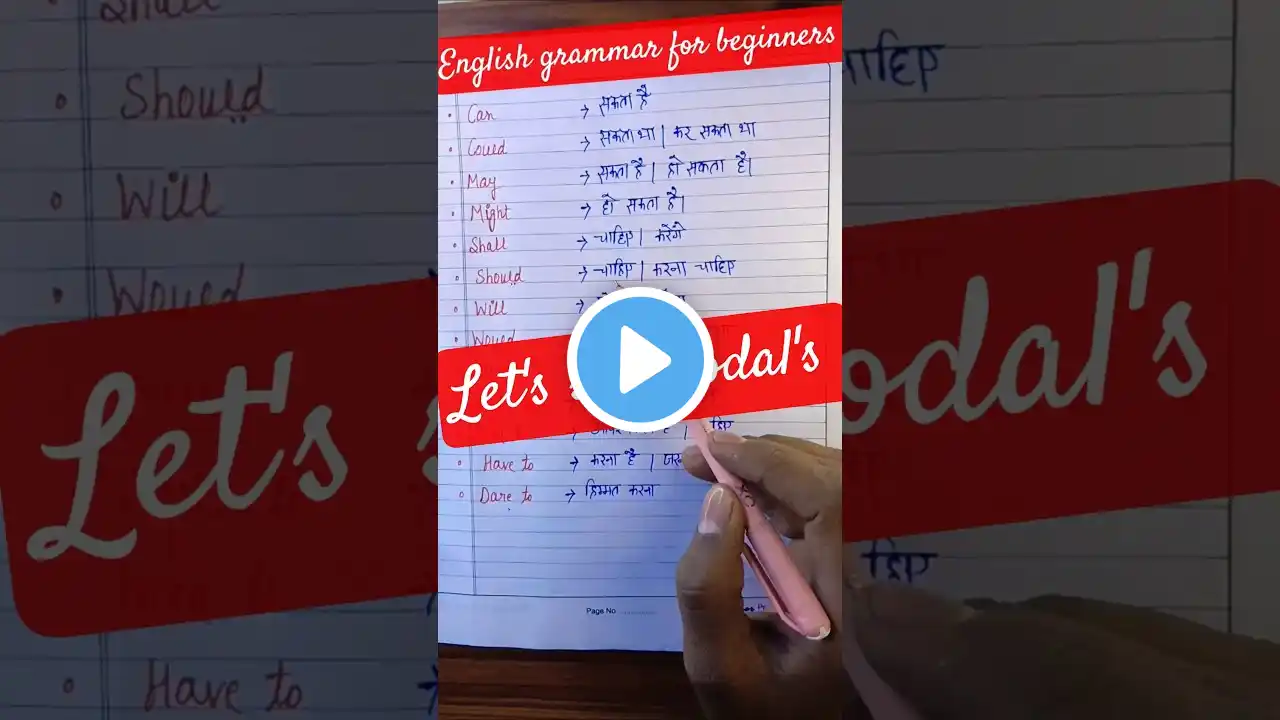 English grammar for beginners
Can → सकता है
Coued → सकता था | कर सकता था
May → सकता है | हो सकता है|
Might → हो सकता है|
Shall → चाहिए | करेंगे
Should → चाहिए | करना चाहिए
Will →
Woued
Let's odal's
Have to → करना है |
Dare to → हिम्मत करना
Page No
Should
Will
Woued
Let's
Have to
odal's